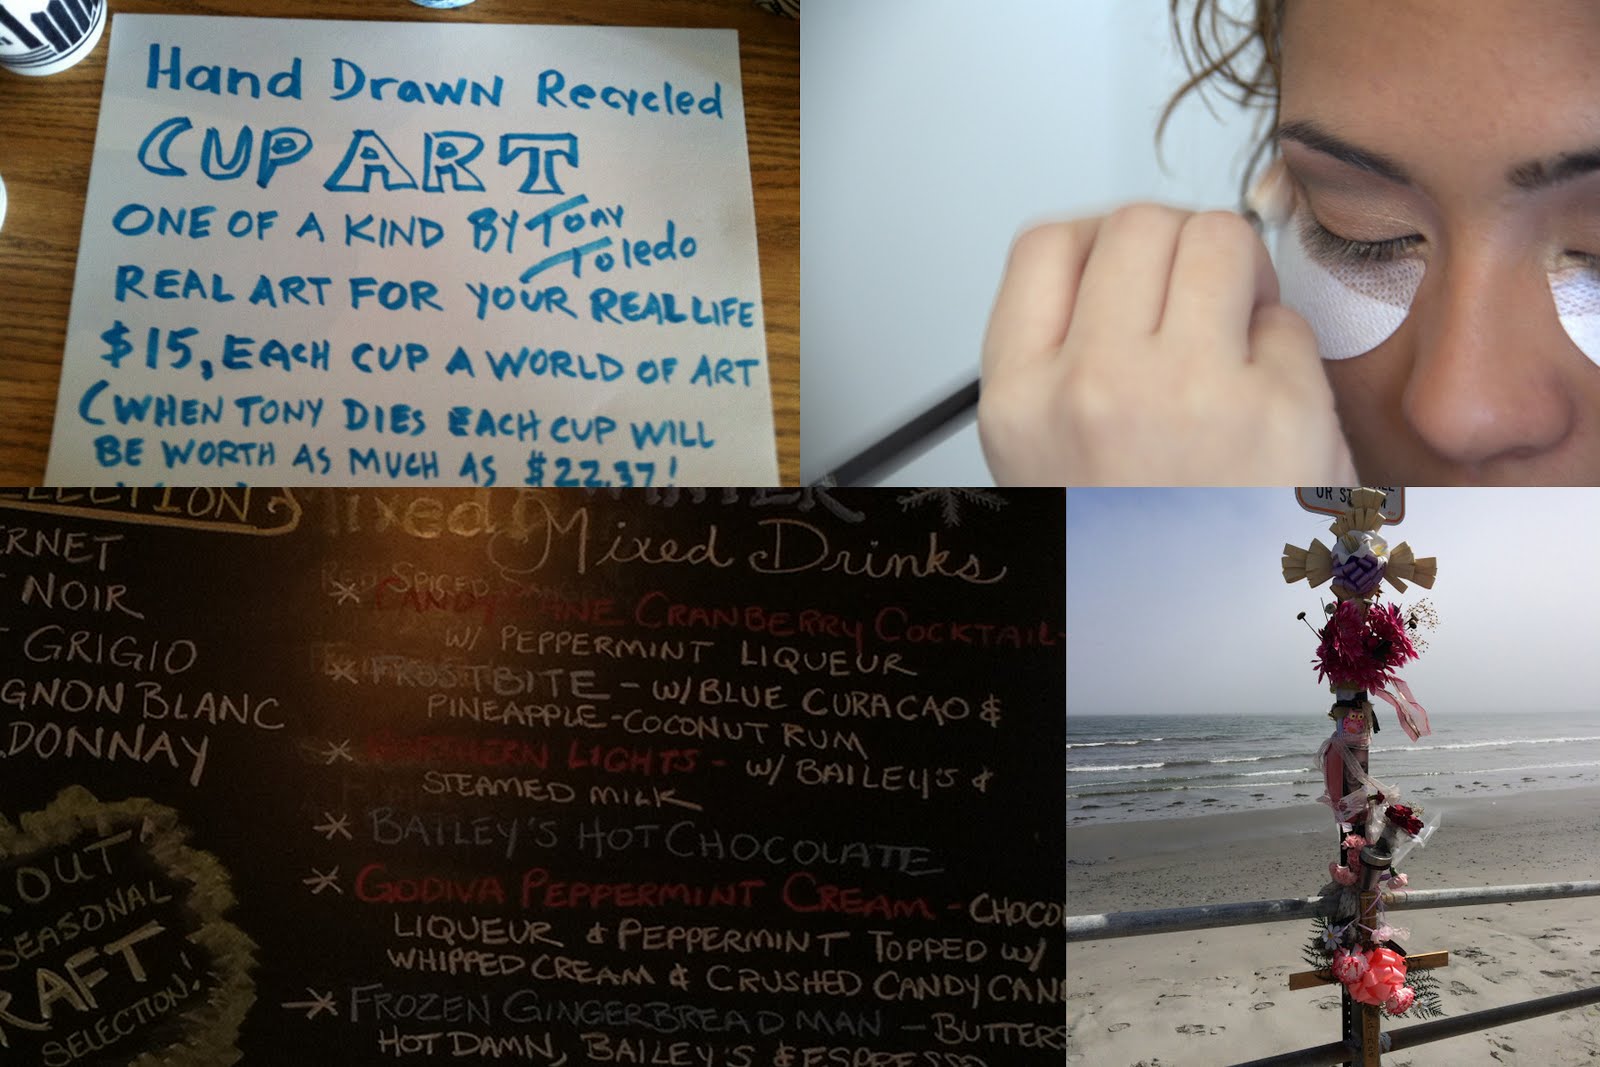 Hand Drawn Recycled
CUP ART
ONE OF A KIND BY Tony
Toledo
REAL ART FOR YOUR REAL LIFE
$15, EACH CUP A WORLD OF ART
(WHEN TONY DIES EACH CUP WILL
BE WORTH AS MUCH AS $22.37!
ELECTION
ERNET
NOIR
GRIGIO
GNON BLANC
DONNAY
OUT
SEASONAL
RAFT
SELECTION!
WINTER
Mixed
Mixed Drinks
* CANDY CANE CRANBERRY COCKTAIL -
W/ PEPPERMINT LIQUEUR
* FROSTBITE - W/ BLUE CURACAO &
PINEAPPLE-COCONUT RUM
* NORTHERN LIGHTS - W/ BAILEY'S &
STEAMED MILK
* BAILEY'S HOT CHOCOLATE
* GODIVA PEPPERMINT CREAM - CHOCO
LIQUEUR & PEPPERMINT TOPPED W/
WHIPPED CREAM & CRUSHED CANDY CAN
* FROZEN GINGERBREAD MAN - BUTTERS
HOT DAMN, BAILEY'S & ESPRESSO
OR